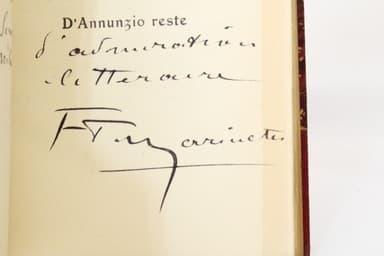 D'Annunzio reste
d'admiration
litteraire
F T Marinetti